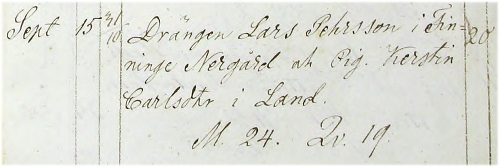 Sept 15 31/10 Drängen Lars Pehrsson i Fin- 20
ninge Nergård ok Pig. Kerstin
Carlsdtr i Land.
M. 24. Qv. 19.